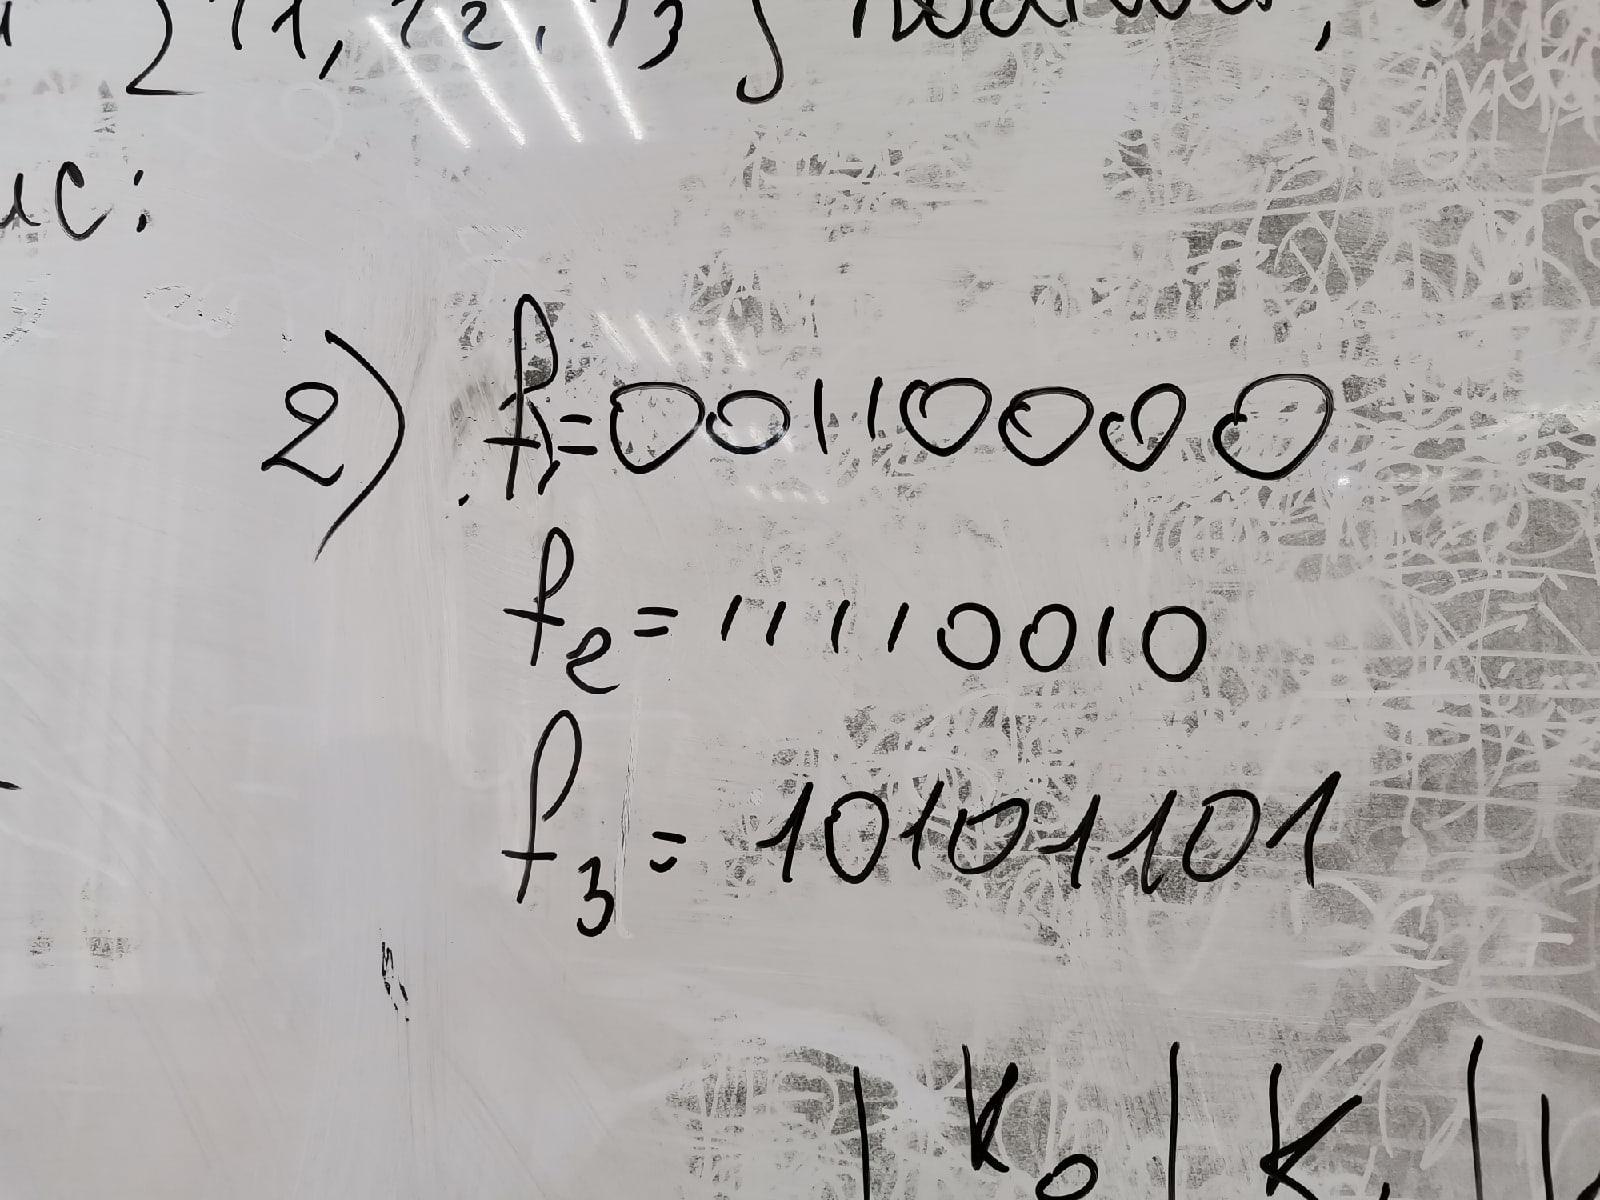 f1, f2, f3 } полной,
ис:
2) f1=00110000
f2 = 11110010
f3 = 10101101
| K0 | K1 |